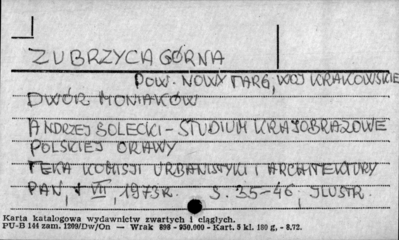 ZUBRZYCA GÓRNA
POW. NOWY TARG, WOJ KRAKOWSKIE
DWÓR MONIAKÓW
ANDRZEJ BOLECKI - STUDIUM KRAJOBRAZOWE
POLSKIEJ ORAWY
TEKA KOMISJI URBANISTYKI I ARCHITEKTURY
PAN, t VII, 1973R. S. 35-46, ILUSTR.
Karta katalogowa wydawnictw zwartych i ciągłych.
PU-B 144 zam. 1209/Dw/On — Wrak 898 - 950.000 - Kart. 5 kl. 180 g, - 8.72.